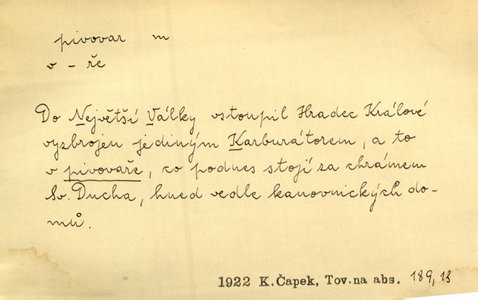 pivovar m
v - ře
Do Největší Války vstoupil Hradec Králové
vyzbrojen jediným Karburátorem, a to
v pivovaře, co podnes stojí za chrámem
Sv. Ducha, hned vedle kanovnických do-
mů.
1922 K.Čapek, Tov.na abs. 189,13